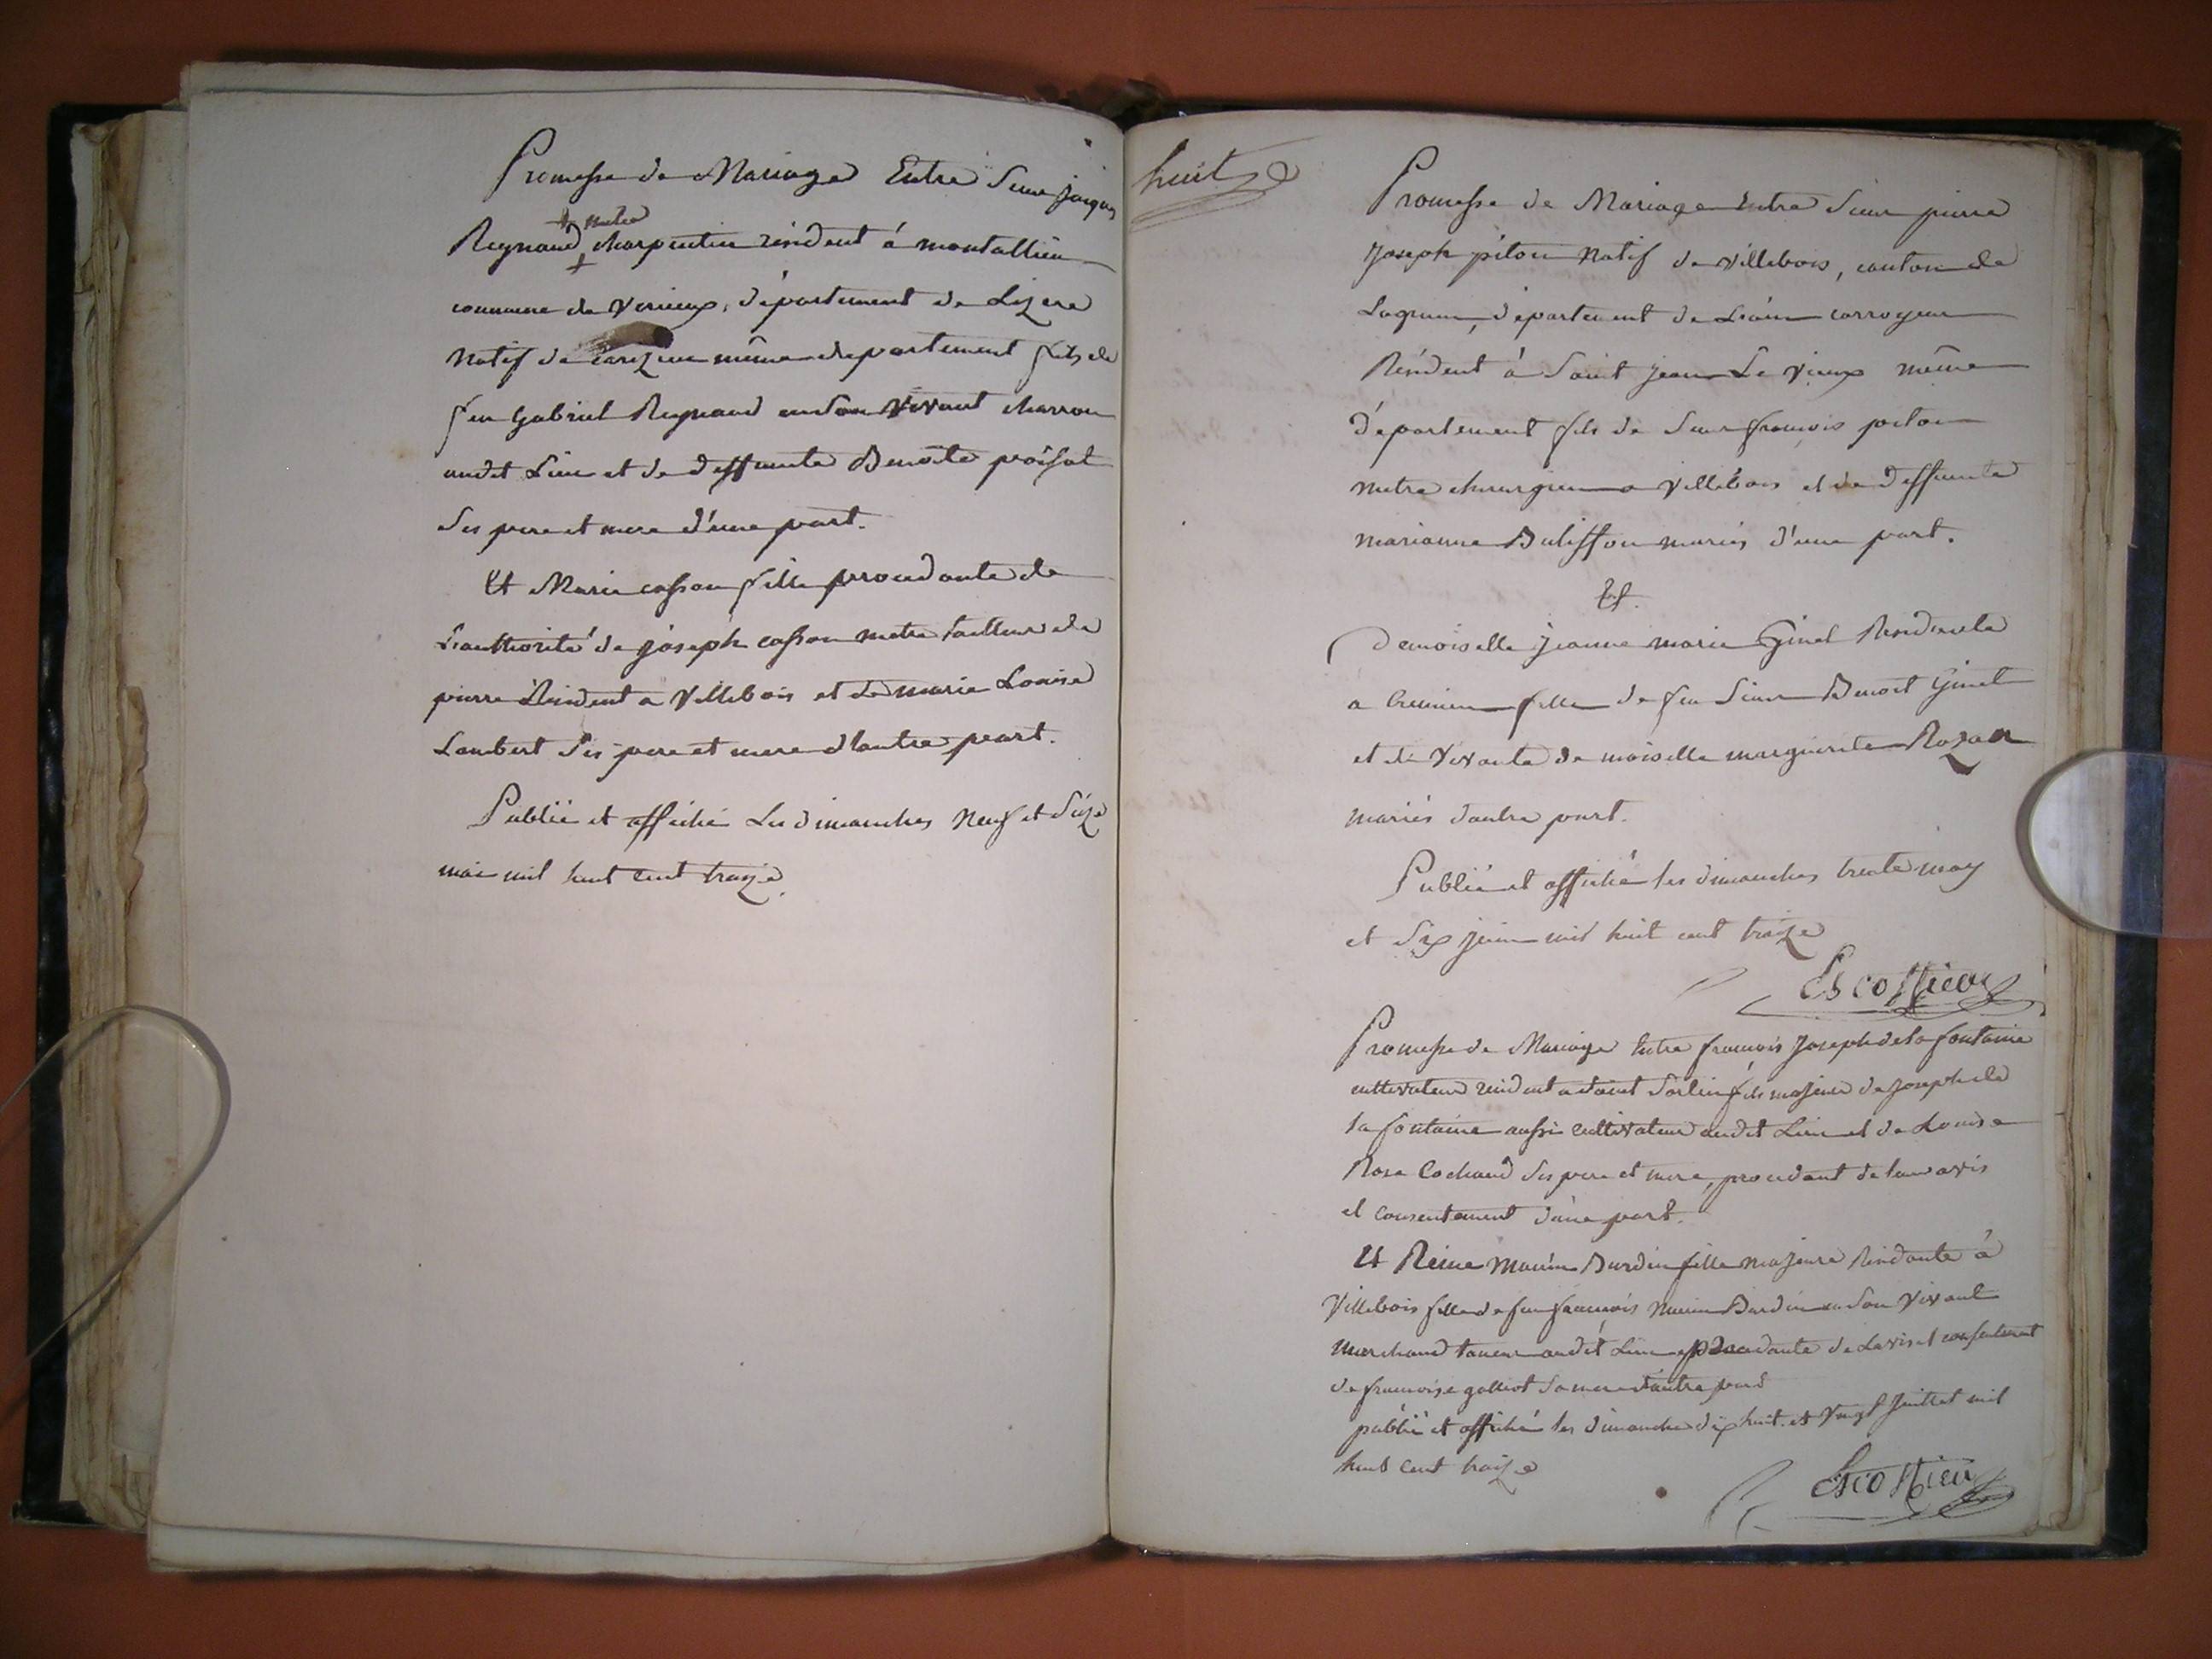 Promesse de Mariage Entre Sieur jacques
+ metre
Reynaud charpentier résident á montallieu
commune de Verieux, département de Lizere
Natif de même departement fils de
feu Gabriel Reynaud en son Vivant charron
audit Lieu et de deffunte Benoîte
ses pere et mere d'une part.
Et Marie casson fille procedante de
L'authorité de joseph casson metre tailleur de
pierre Résident a Villebois et de marie Louise
Lambert ses pere et mere d'autre part.
Publié et affiché Les dimanches Neuf et Seize
mai mil huit cent treize.
huit
Promesse de Mariage Entre Sieur pierre
Joseph piton Natif de Villebois, canton de
Lagnieu, département de L'ain corroyeur
Résident á Saint Jean Le Vieux même
département fils de Sieur françois piton
metre chirurgien a Villebois et de deffunte
marianne Bulisson mariés d'une part.
Et.
Demoiselle Jeanne marie Ginet Residente
a Cremieu fille de feu Sieur Benoit Ginet
et de Vivante demoiselle marguerite Rozan
mariés d'autre part.
Publié et affiché les dimanches trente may
et Six juin mil huit cent treize
Escoffieu
Promesse de Mariage Entre francois Joseph de la fontaine
cultivateur resident a Saint Sorlin fils majeur de Joseph de
la fontaine aussi cultivateur audit Lieu et de Louise
Rose Cochaud ses pere et mere, procedant de leur avis
et Consentement d'une part.
Et Reine Maurin Burdin fille majeure Residante á
Villebois fille de feu francois Burdin en son Vivant
marchand taneur audit Lieu procedante de Lavis et consentement
de francoise galliot sa mere d'autre part
publié et affiché les dimanche dix huit et Vingt Juillet mil
huit Cent treize
Escoffieu